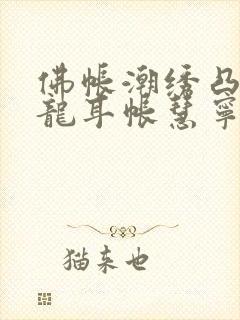 佛帐潮绣凸
龍耳帐慧寧
猫来也